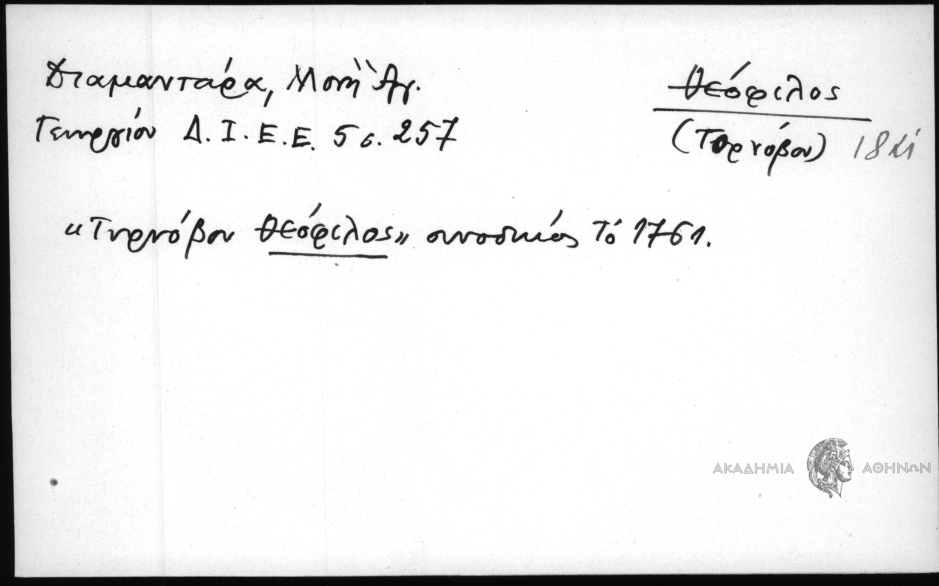 Διαμαντάρα, Μονή Ἁγ.
Γεωργίου Δ. Ι. Ε. Ε. 5 σ. 257
Θεόφιλος
(Τορνόβου)
«Τυρνόβου Θεόφιλος» συνοδικός Τό 1761.
ΑΚΑΔΗΜΙΑ ΑΘΗΝΩΝ